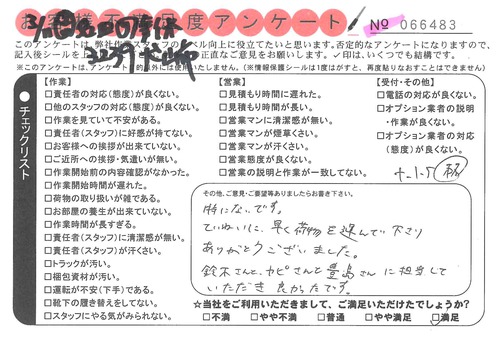 お客様不満足度アンケート
№ 066483
このアンケートは、弊社作業スタッフのレベル向上に役立てたいと思います。否定的なアンケートになりますので、
記入後シールを上 正直なご意見をお願いします。✓印は、いくつでも結構です。
※このアンケートは、 以外には使用いたしません。(※情報保護シールは1度はがすと、再度貼りなおすことはできません)
チェックリスト
【作業】
□責任者の対応(態度)が良くない。
□他のスタッフの対応(態度)が良くない。
□作業を見ていて不安がある。
□責任者(スタッフ)に好感が持てない。
□お客様への挨拶が出来ていない。
□ご近所への挨拶・気遣いが無い。
□作業開始前の内容確認がなかった。
□作業開始時間が遅れた。
□荷物の取り扱いが雑である。
□お部屋の養生が出来ていない。
□作業時間が長すぎる。
□責任者(スタッフ)に清潔感が無い。
□責任者(スタッフ)が汗くさい。
□トラックが汚い。
□梱包資材が汚い。
□運転が不安(下手)である。
□靴下の履き替えをしてない。
□スタッフにやる気がみられない。
【営業】
□見積もり時間に遅れた。
□見積もり時間が長い。
□営業マンに清潔感が無い。
□営業マンが煙草くさい。
□営業マンが汗くさい。
□営業態度が良くない。
□営業の説明と作業が一致してない。
【受付・その他】
□電話の対応が良くない。
□オプション業者の説明
・作業が良くない。
□オプション業者の対応
(態度)が良くない。
その他、ご意見・ご要望等ありましたらお書き下さい。
特にないです。
ていねいに、早く荷物を運んで下さり
ありがとうございました。
鈴木さんと、カピさんと豊島さんに担当して
いただき良かったです。
☆当社をご利用いただきまして、ご満足いただけたでしょうか?
□不満 □やや不満 □普通 □やや満足 ☑満足